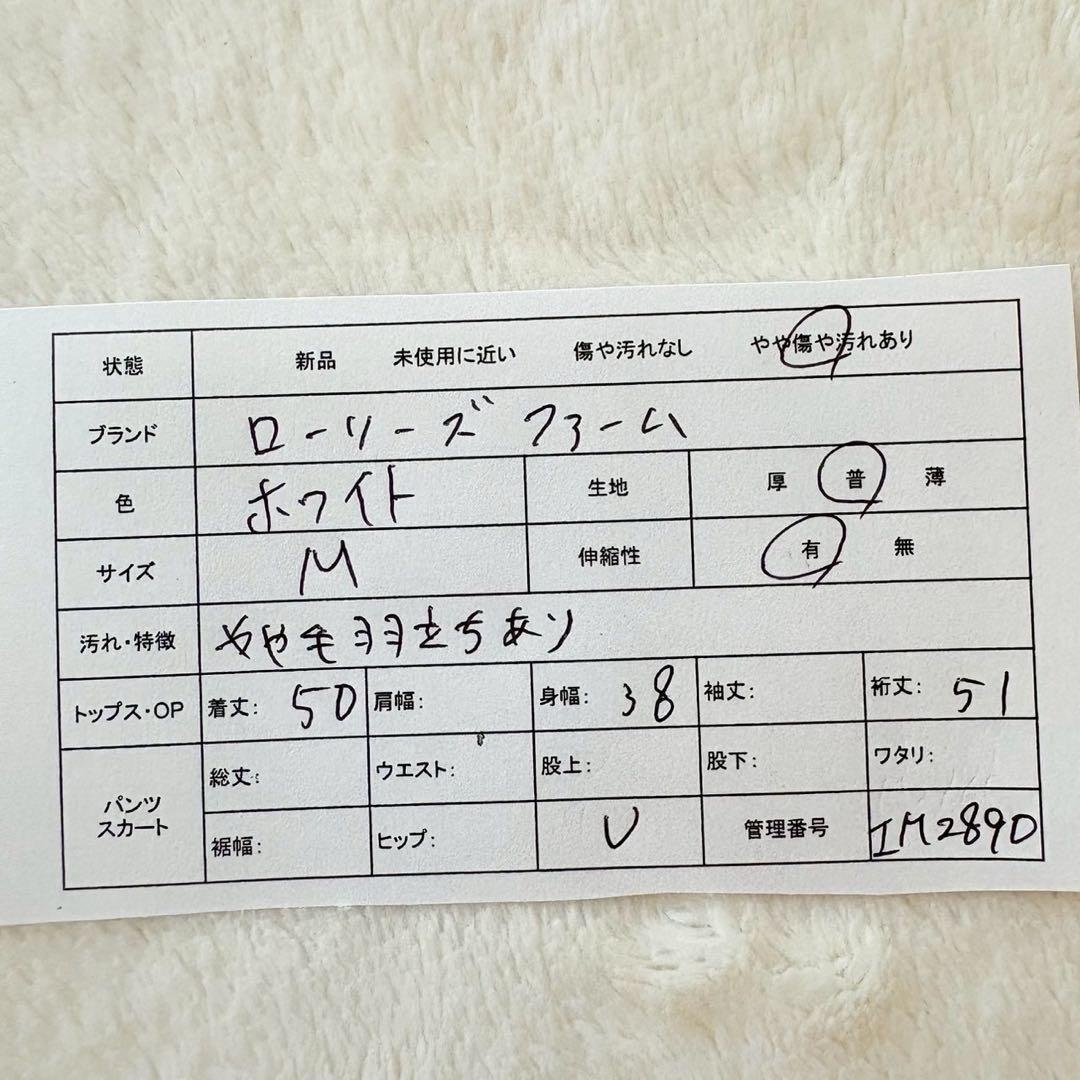 状態 新品 未使用に近い 傷や汚れなし やや傷や汚れあり
ブランド ローリーズファーム
色 ホワイト 生地 厚 普 薄
サイズ M 伸縮性 有 無
汚れ・特徴 やや毛羽立ちあり
トップス・OP 着丈: 50 肩幅: 身幅: 38 袖丈: 裄丈: 51
パンツ スカート 総丈: ウエスト: 股上: 股下: ワタリ:
裾幅: ヒップ: U 管理番号 IM2890